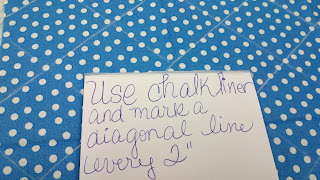 Use chalkliner
and mark a
diagonal line
every 2"